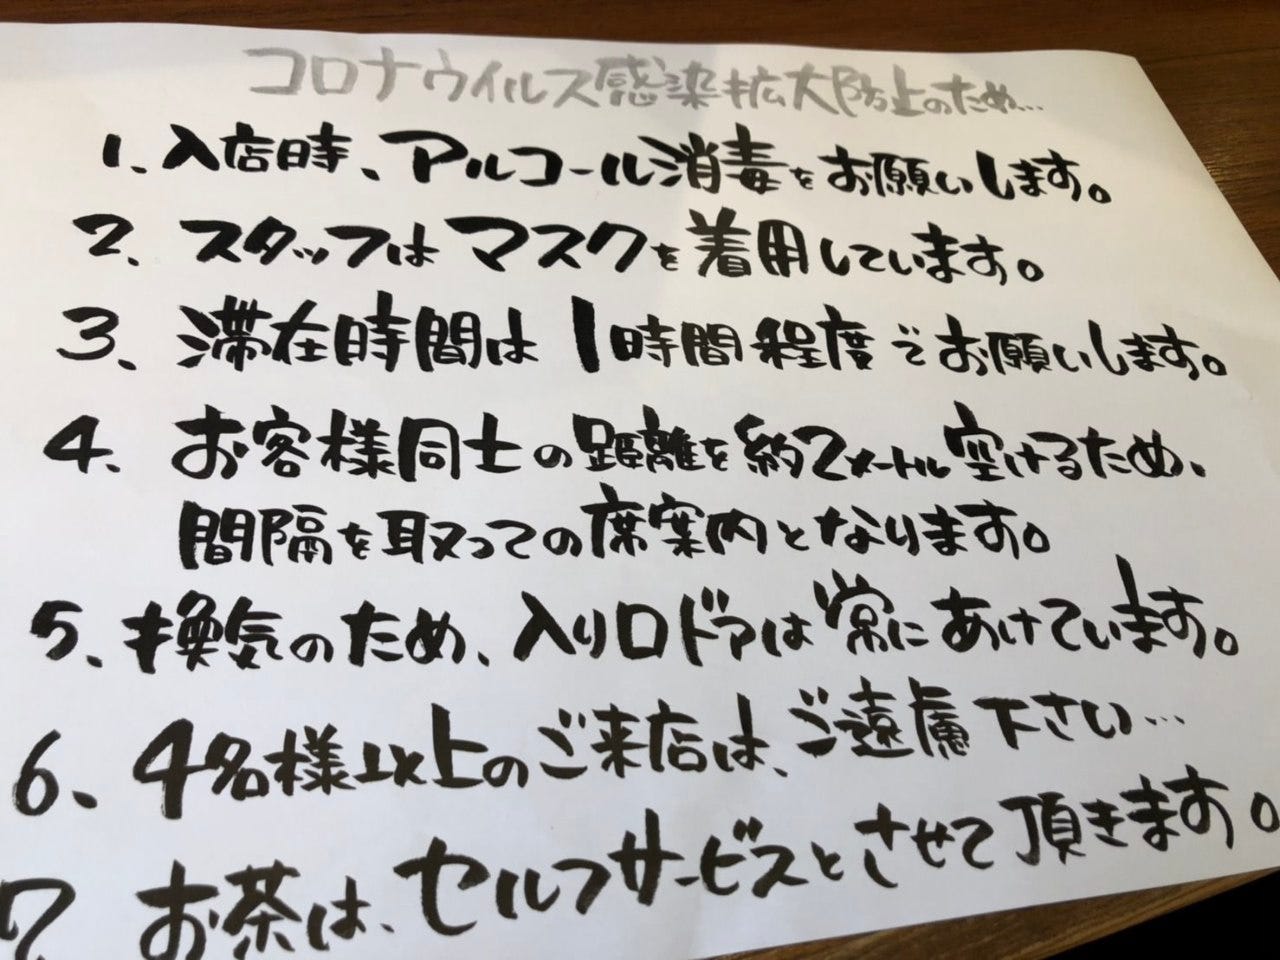 コロナウイルス感染拡大防止のため…
1、入店時、アルコール消毒をお願いします。
2、スタッフはマスクを着用しています。
3、滞在時間は1時間程度でお願いします。
4、お客様同士の距離を約2メートル空けるため、
間隔を取っての席案内となります。
5、換気のため、入り口ドアは常にあけています。
6、4名様以上のご来店は、ご遠慮下さい…
7 お茶は、セルフサービスとさせて頂きます。